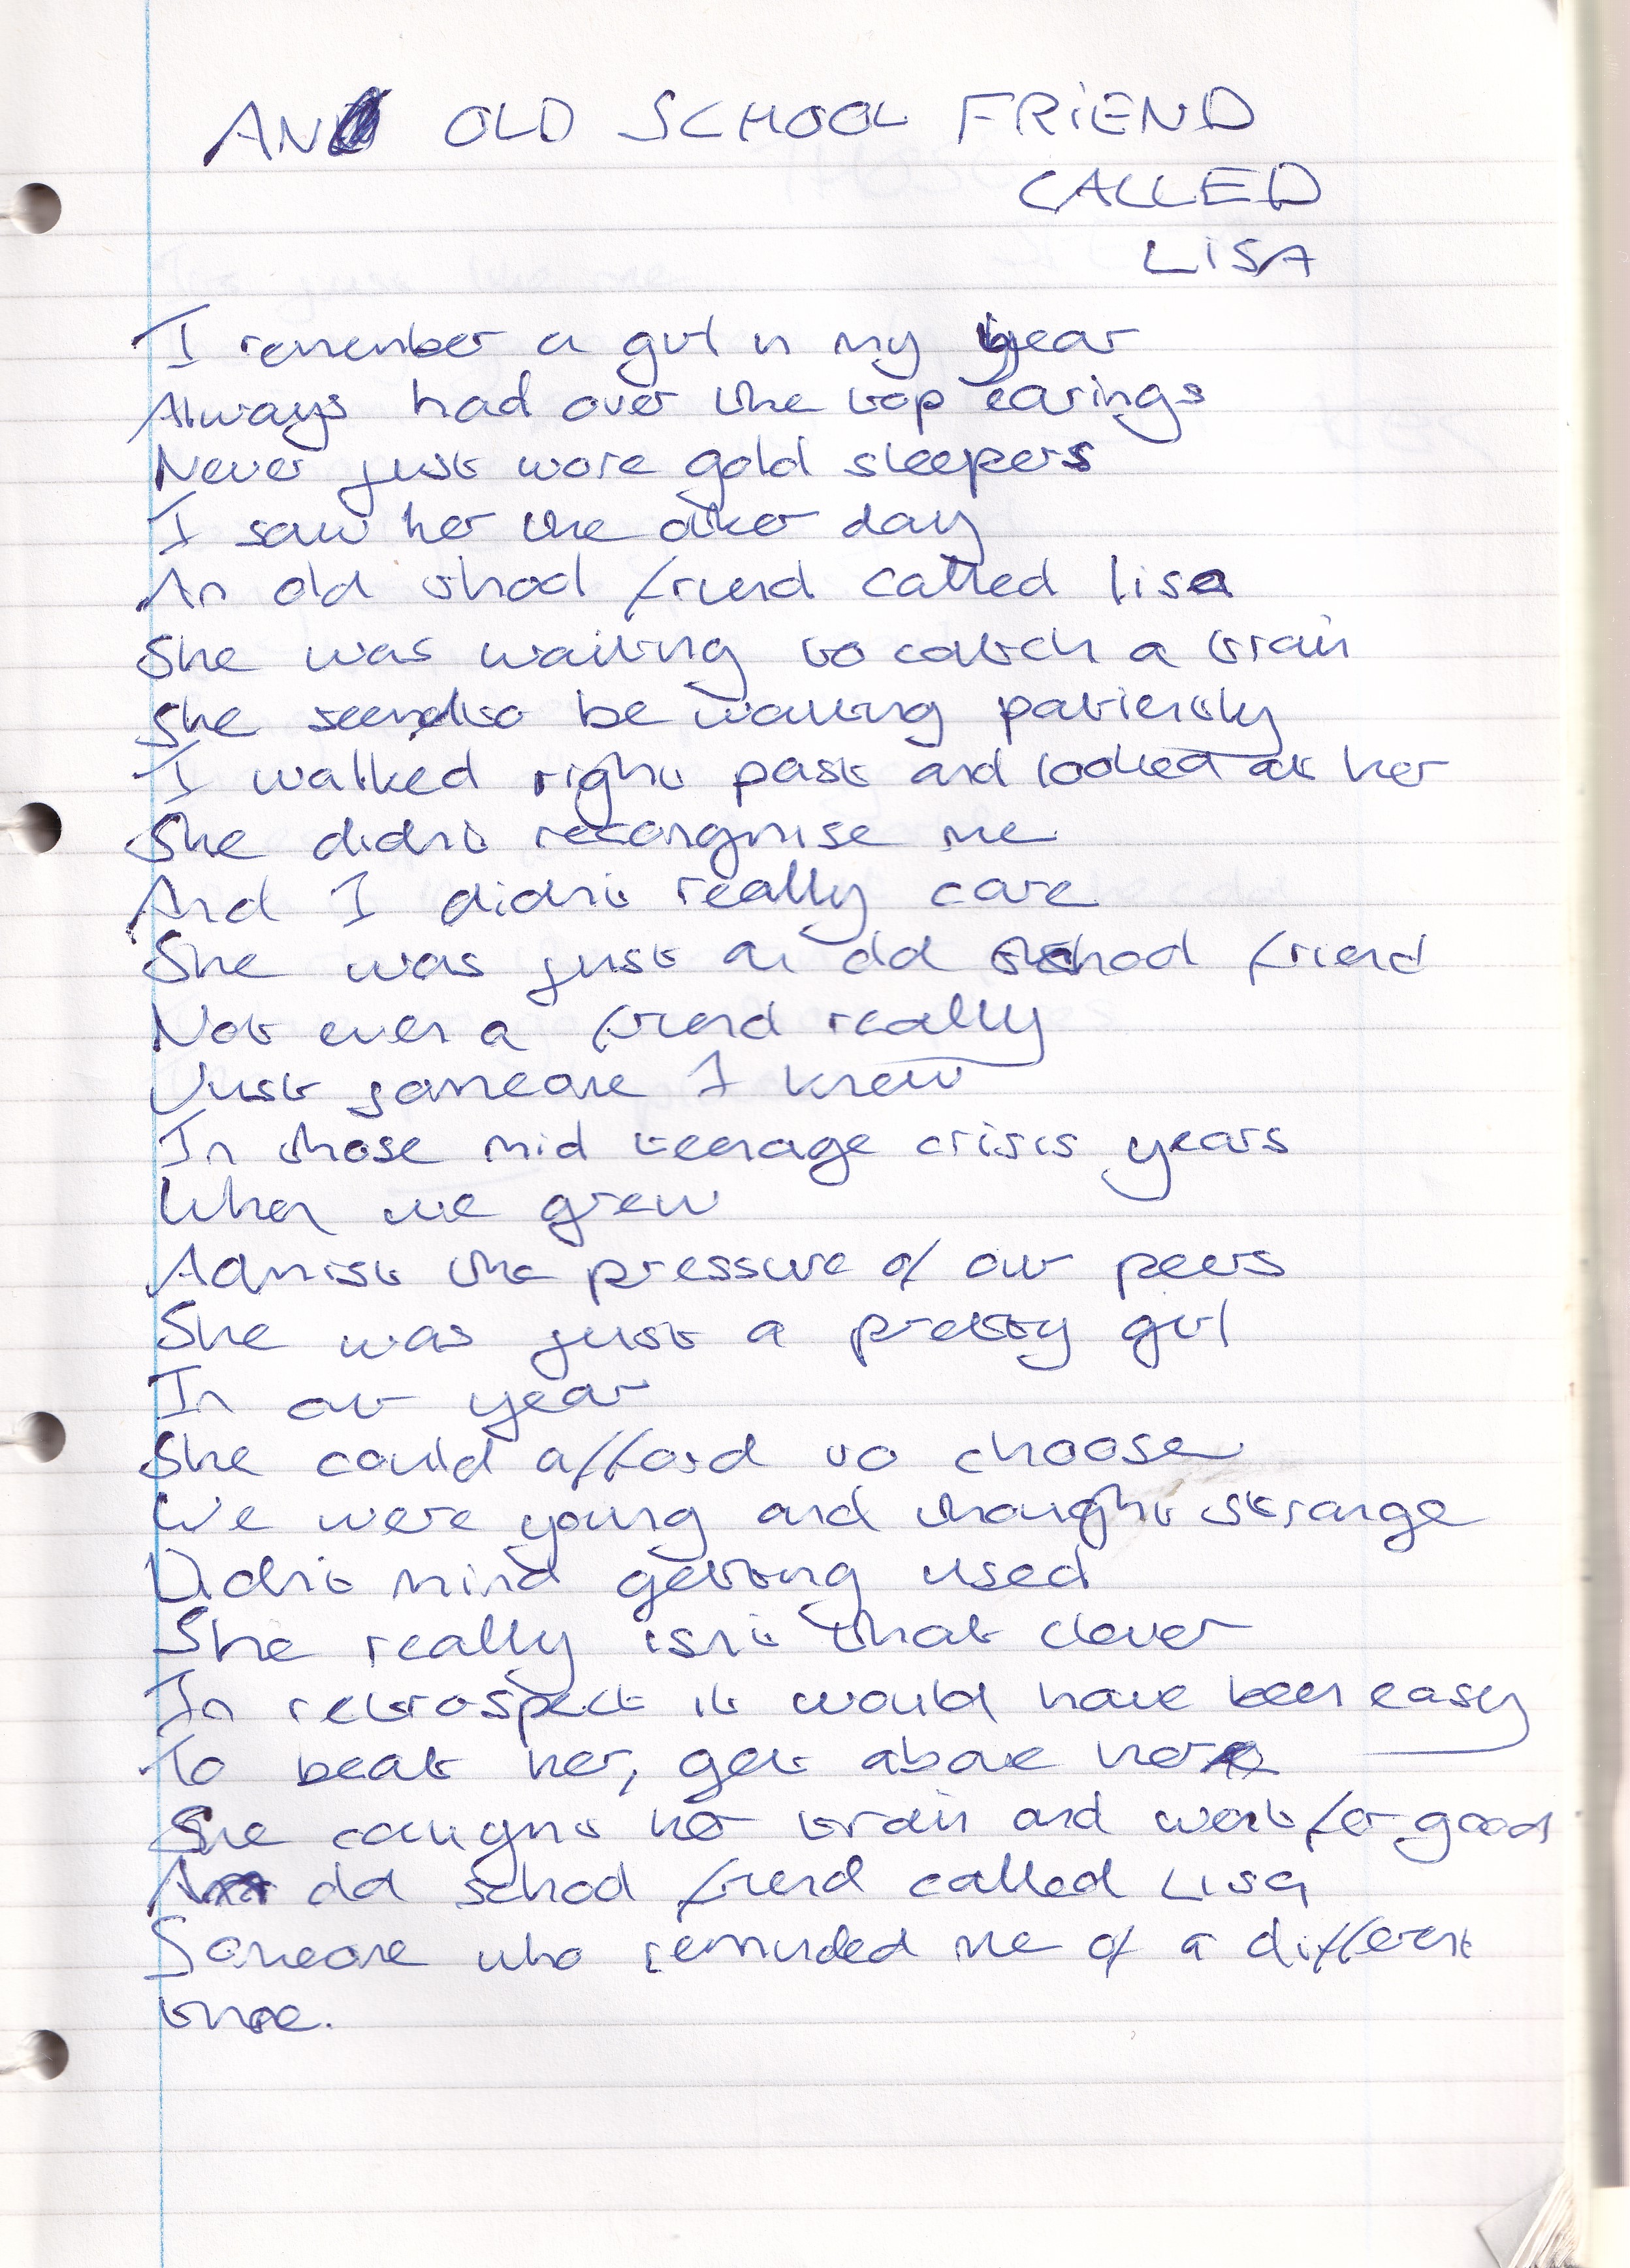 AN OLD SCHOOL FRIEND
CALLED
LISA
I remember a girl in my year
Always had over the top earings
Never just wore gold sleepers
I saw her the other day
An old shool friend called lisa
She was waiting to catch a train
She seemed to be waiting patiently
I walked right past and looked at her
She didn't recorgnise me
And I didn't really care
She was just an old school friend
Not even a friend really
Just someone I knew
In those mid teenage crisis years
When we grew
Admist the pressure of our peers
She was just a pretty girl
In our year
She could afford to choose
We were young and thought strange
Didn't mind getting used
She really isn't that clever
In retrospect it would have been easy
To beat her, get above her
She caught her train and went for good
An old school friend called Lisa
Someone who reminded me of a different
time.